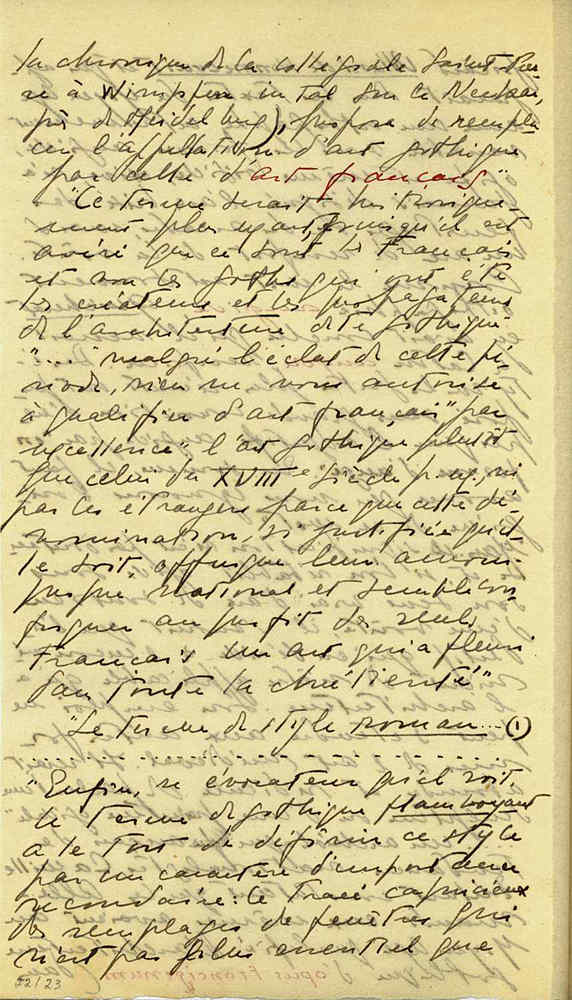 la chronique de la collégiale Saint-Pier-
re à Wimpfen im Tal sur le Neckar,
près de Heidelberg), propose de rempla-
cer l'appellation d'art gothique
par celle d'art français"
"Ce terme serait historique-
ment plus exact, puisqu'il est
avéré que ce sont les Français
et non les goths qui ont été
les créateurs et les propagateurs
de l'architecture dite gothique"
"...." malgré l'éclat de cette pé-
riode, rien ne nous autorise
à qualifier d'art français "par
excellence", l'art gothique plutôt
que celui du XVIIIe siècle p. ex., ni
par les étrangers parce que cette dé-
nomination, si justifiée qu'el-
le soit, offusque leur amour-
propre national et semble con-
fisquer au profit des seuls
Français un art qui a fleuri
dans toute la chrétienté"
"Le terme de style roman... (1)
"Enfin, si évocateur qu'il soit,
le terme de gothique flamboyant
a le tort de définir ce style
par un caractère d'importance
secondaire: le tracé capricieux
des remplages de fenêtres qui
n'est pas plus essentiel que
52/23 opus francigenum